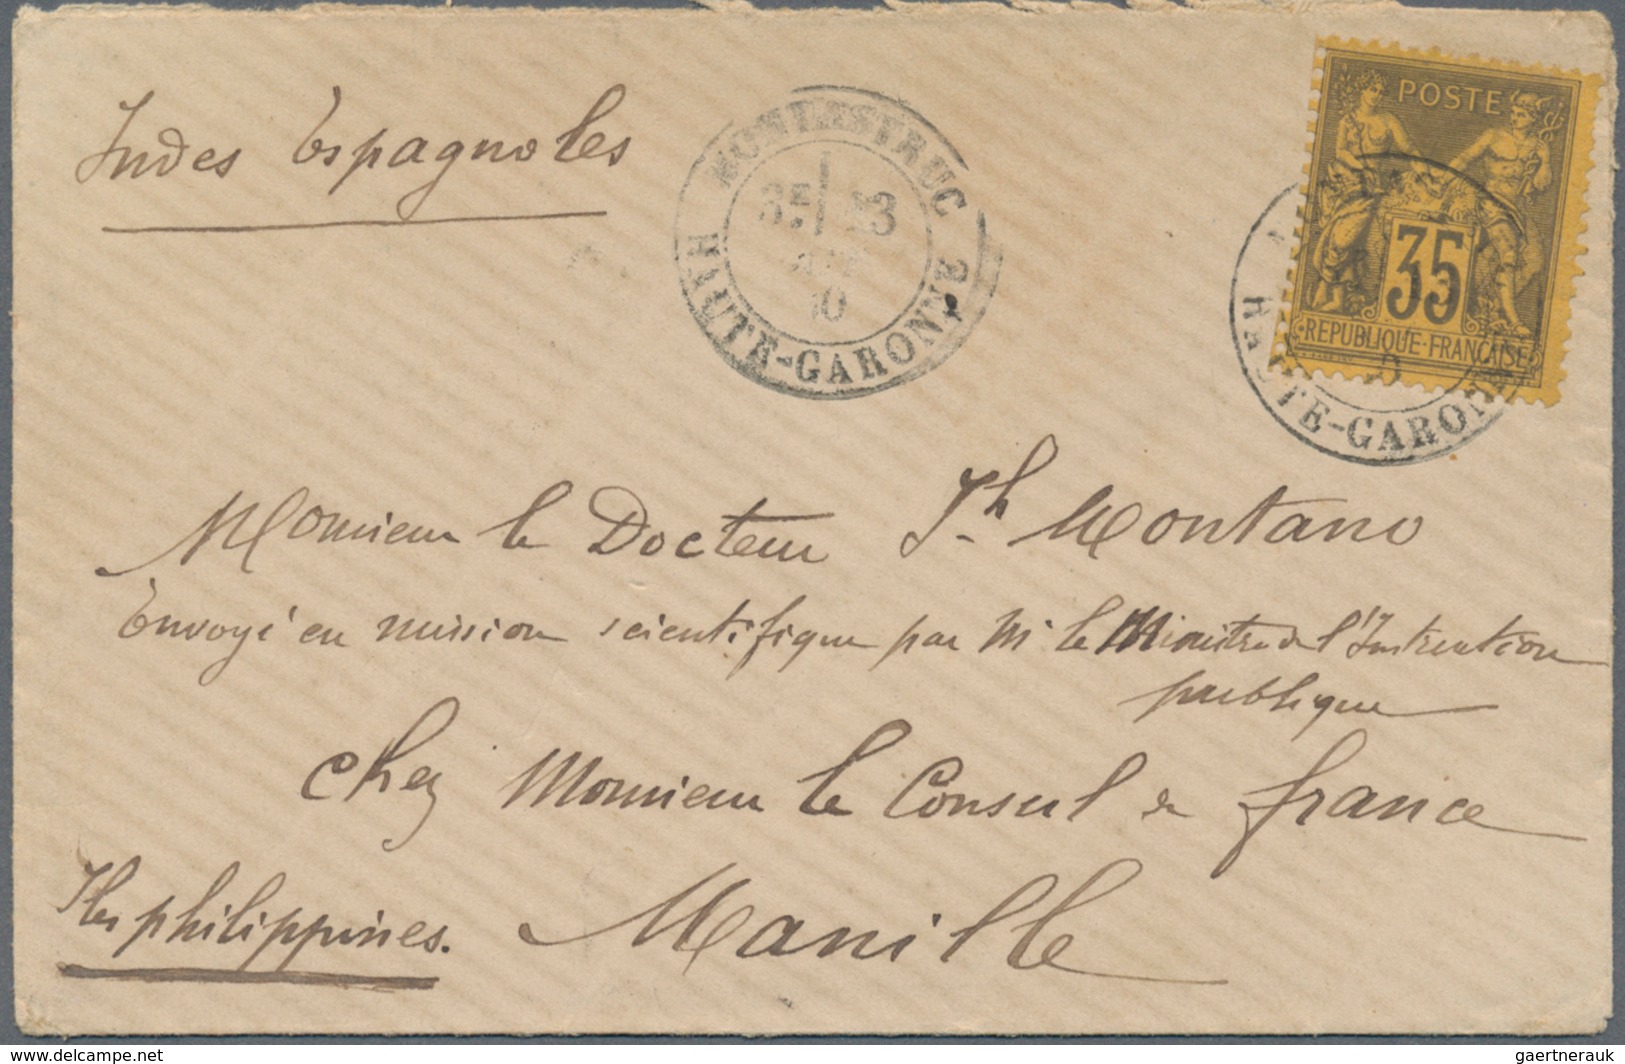 Indes Espagnoles
MONTASTRUC
HAUTE-GARONNE
POSTE
35
REPUBLIQUE·FRANCAISE
HAUTE-GARONNE
Monsieur le Docteur Jh Montano
Envoyé en mission scientifique par Mr le Ministre de l'Instruction
publique
chez Monsieur le Consul de france
Iles philippines. Manille
www.delcampe.net
gaertnerauk